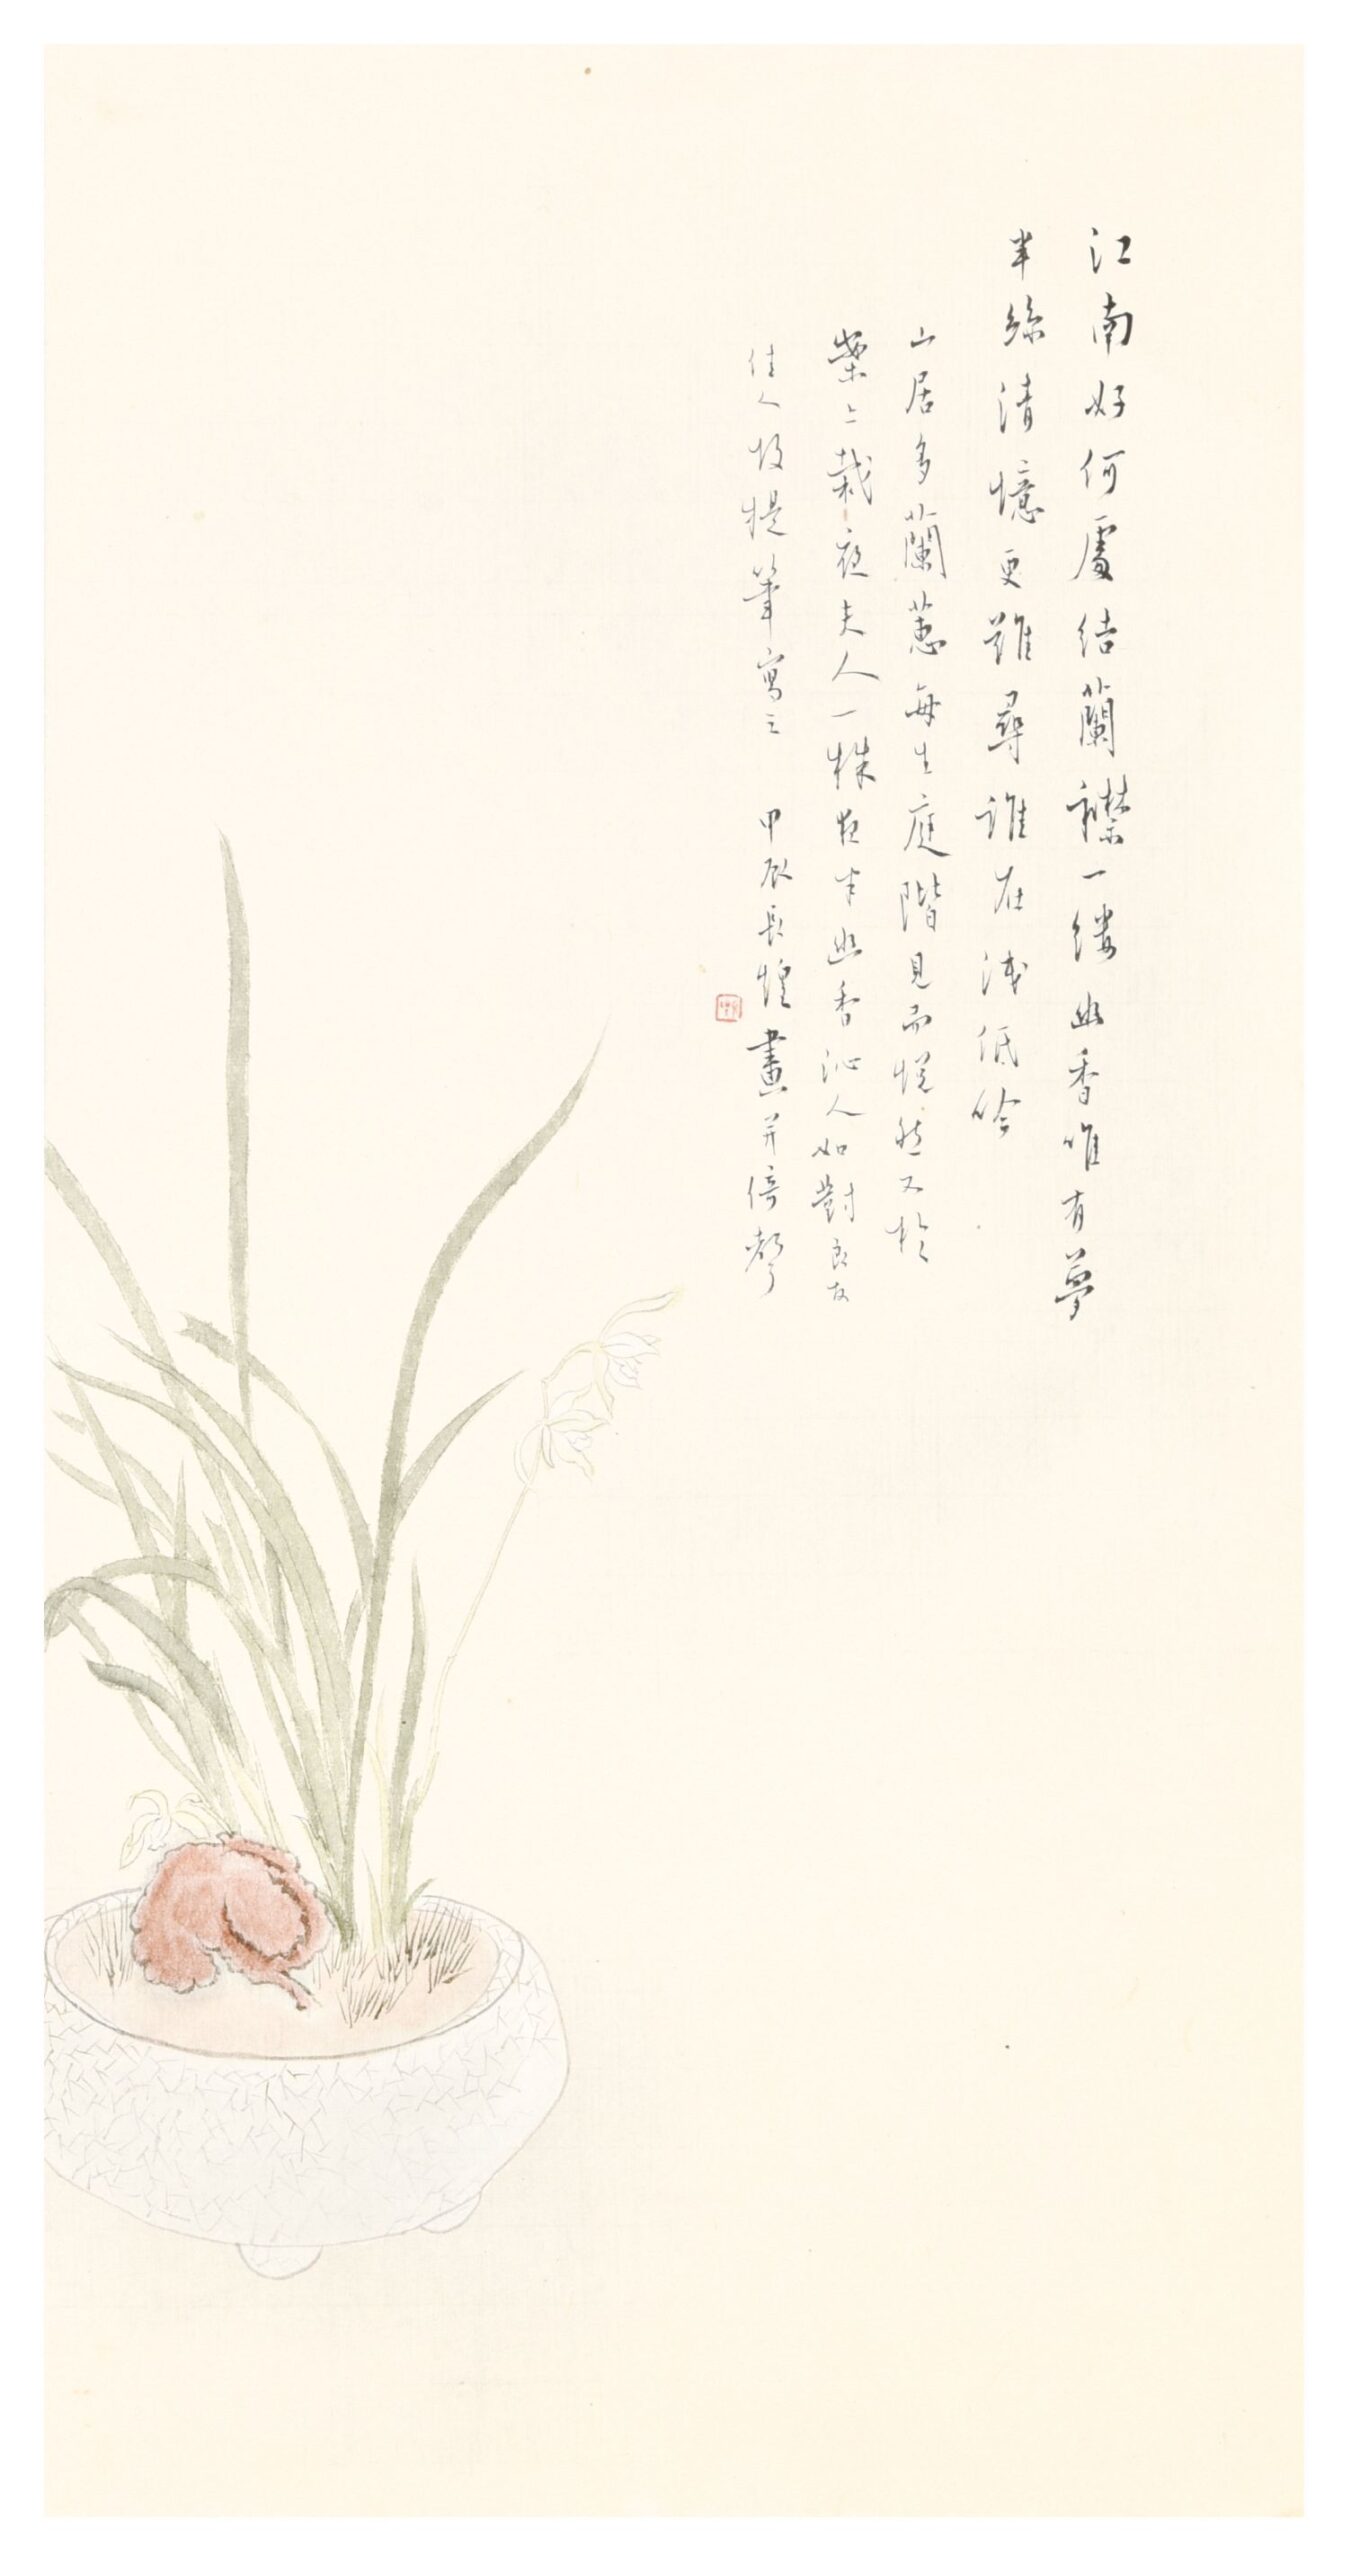 江南好何處結蘭襟一縷幽香唯有夢
半絲清憶更難尋誰在淺低吟
山居多蘭蕙每生庭階見而悅然又於
案上栽夜夫人一株夜半幽香沁人如對良友
佳人故提筆寫之 甲辰長煌畫并倚聲